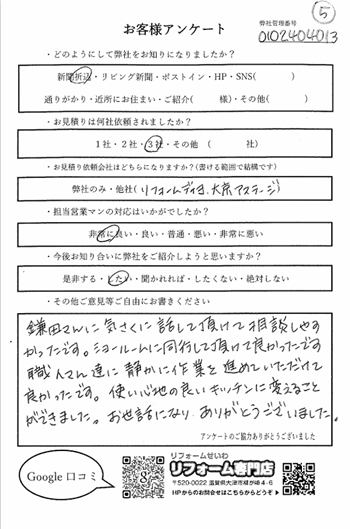 ⑤
お客様アンケート
弊社管理番号
0102404013
・どのようにして弊社をお知りになりましたか？
新聞折込・リビング新聞・ポストイン・HP・SNS(　　　)
通りがかり・近所にお住まい・ご紹介(　　　様)・その他(　　　)
・お見積りは何社依頼されましたか？
1社・2社・3社・その他 (　　　社)
・お見積り依頼会社はどちらになりますか？(書ける範囲で結構です)
弊社のみ・他社(リフォーム　　、大京アステージ)
・担当営業マンの対応はいかがでしたか？
非常に良い・良い・普通・悪い・非常に悪い
・今後お知り合いに弊社をご紹介しようと思いますか？
是非する・したい・聞かれれば・したくない・絶対しない
・その他ご意見等ご自由にお書きください
鎌田さんに気さくに話して頂けて相談しやす
かったです。ショールームに同行して頂けて良かったです
職人さん達に静かに作業を進めていただけて
良かったです。使い心地の良いキッチンに変えること
ができました。お世話になり ありがとうございました。
アンケートのご協力ありがとうございました
Google口コミ
リフォームせいわ
リフォーム専門店
〒520-0022 滋賀県大津市柳が崎4-6
HPからのお問合せはこちらからどうぞ